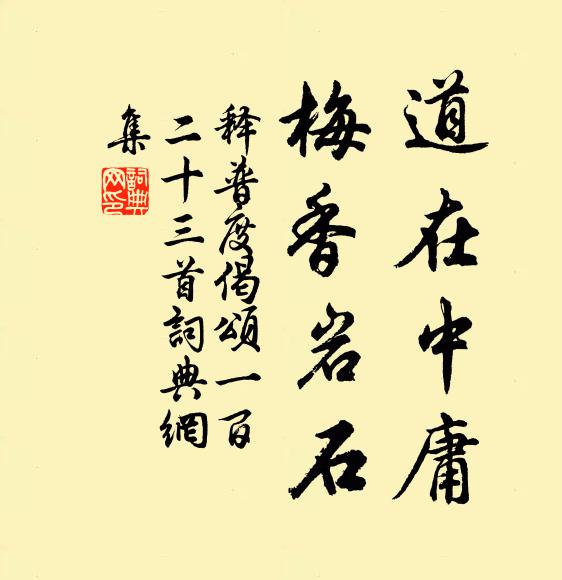 道在中庸
梅香岩石
释普度偈颂一百
二十三首詞典網
集
詞典
网印